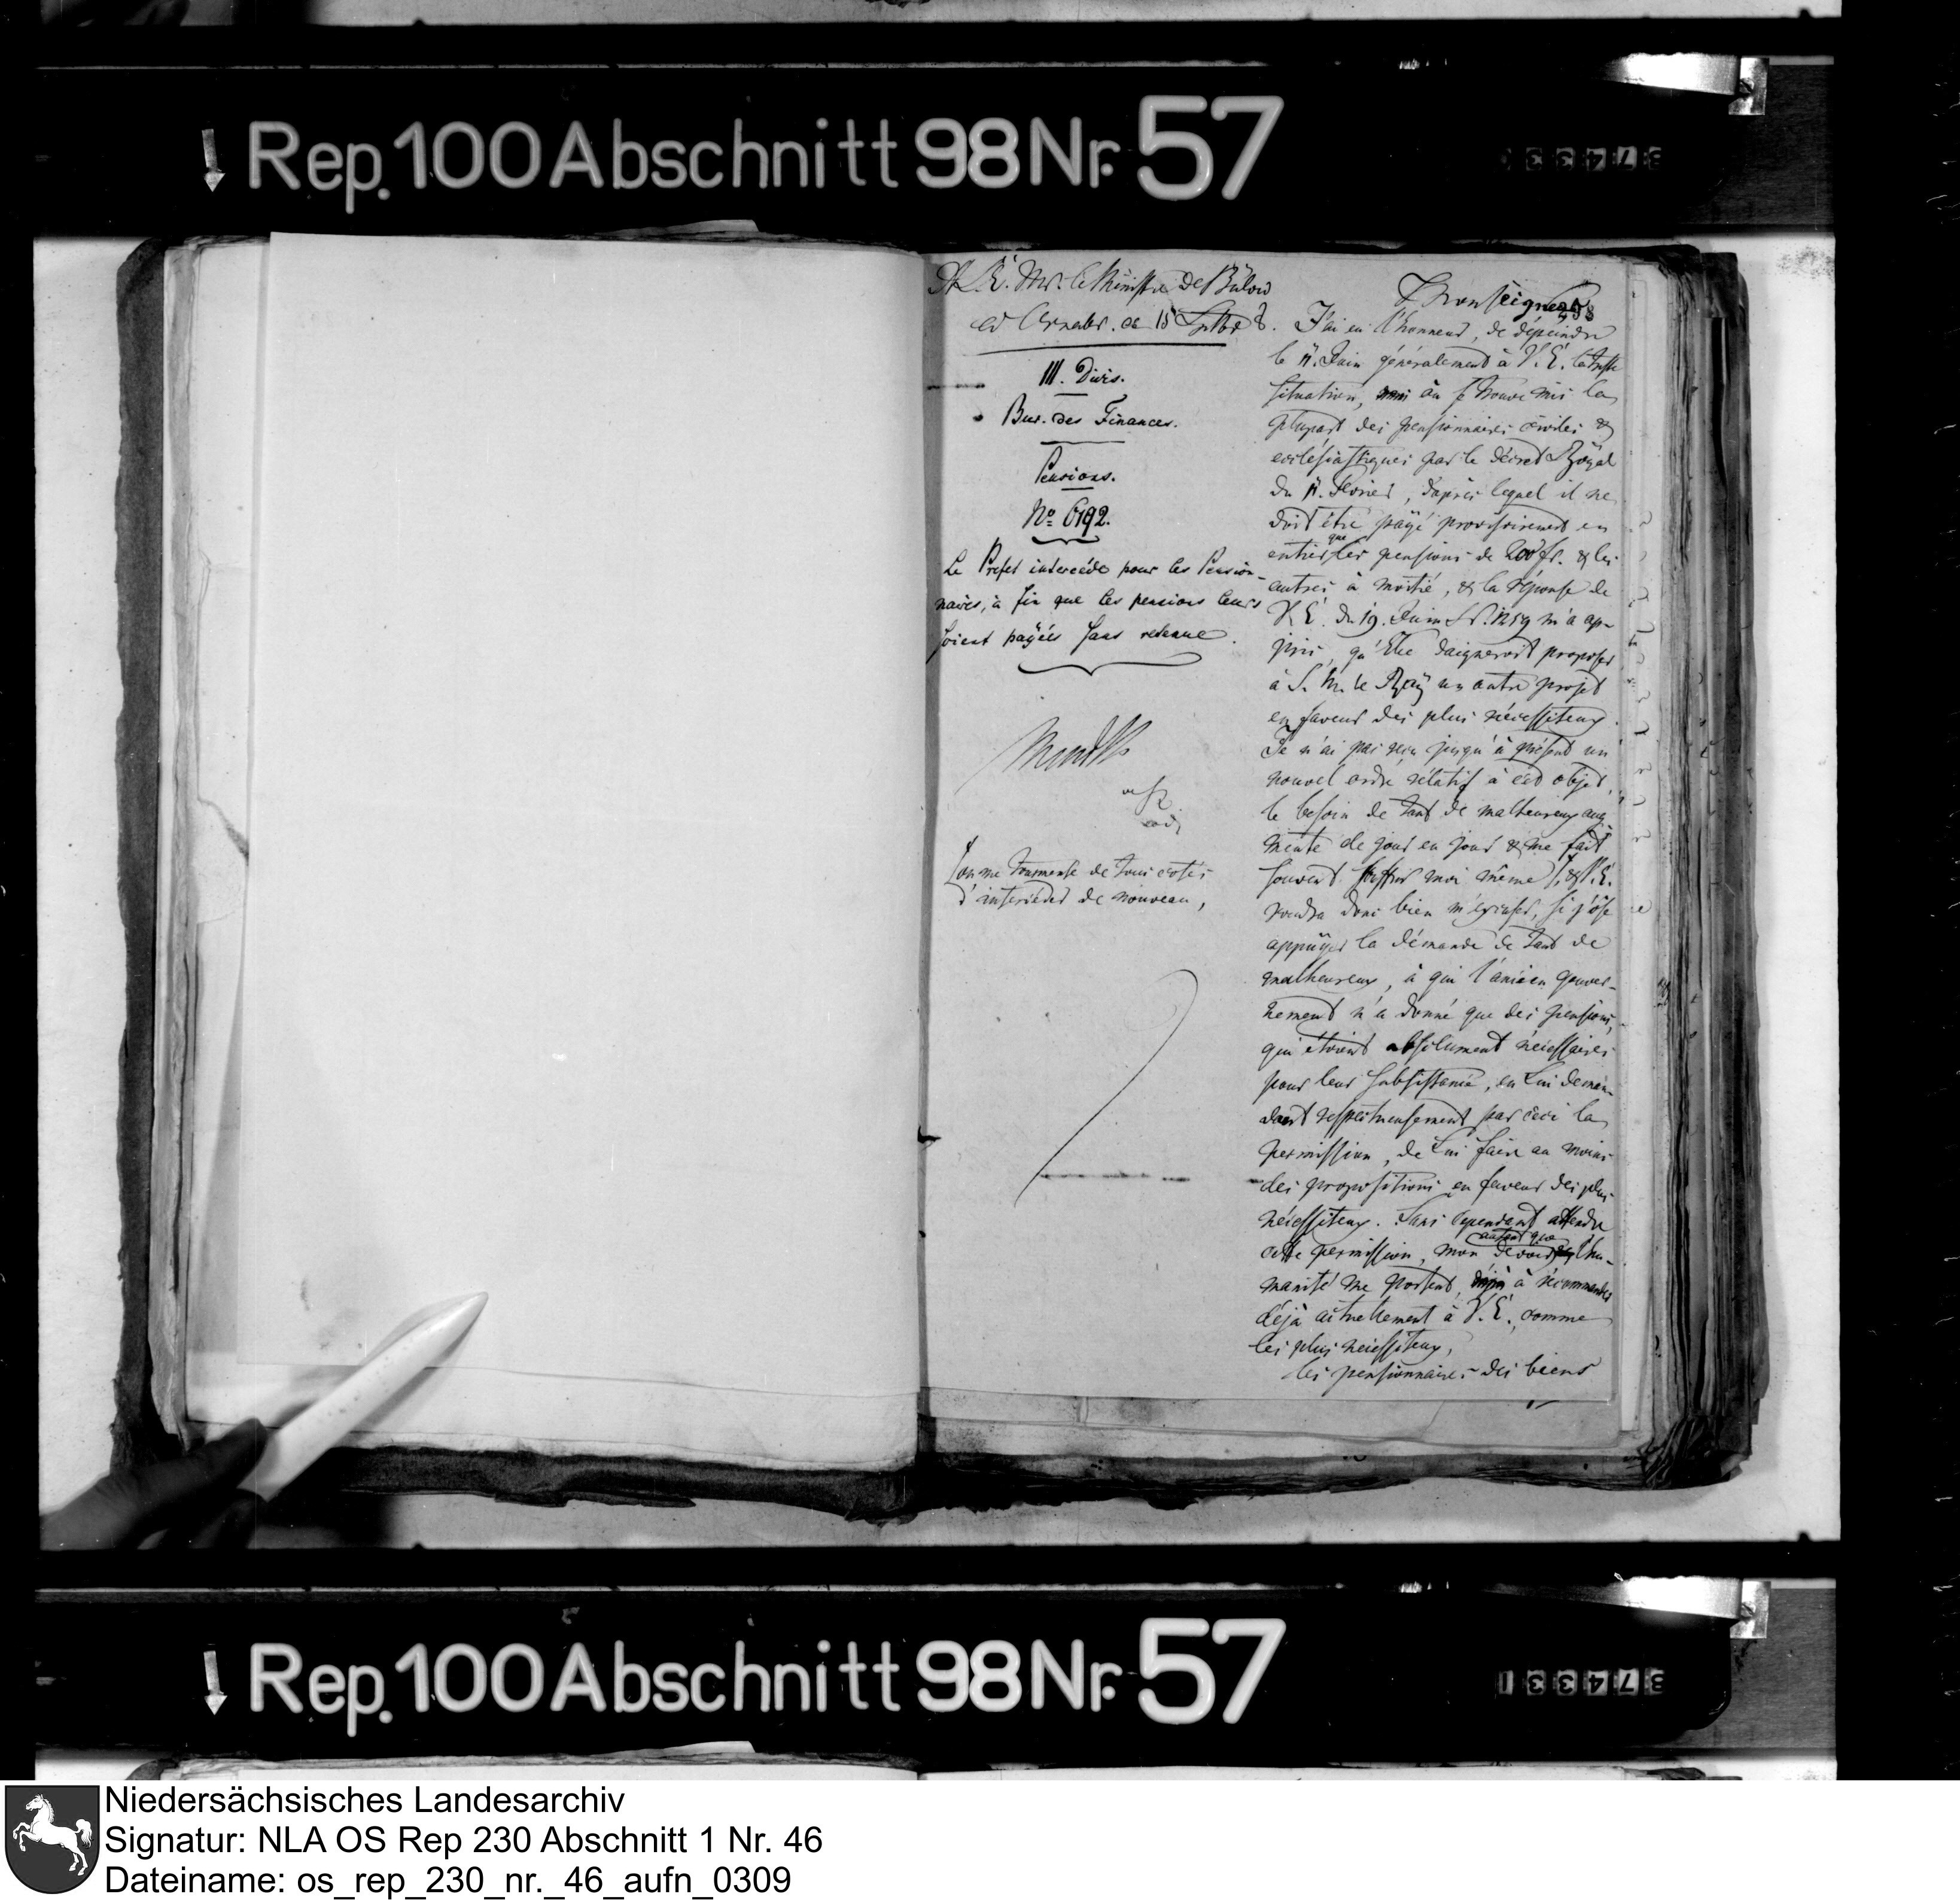 Rep. 100 Abschnitt 98 Nr. 57
A S. E. Mr. le Ministre de Bülow
III. Divis.
Bur. des Finances.
Pensions.
No. 6192.
Le Prefet intercéde pour les Pension-
naires, à fin que les pensions leurs
soient payées sans retenue.
on me tourmente de tous cotés
d'interceder de nouveau,
Monseigneur
J'ai eu l'honneur, de dépeindre
le 11. Juin généralement à V. E. la triste
situation, où se trouve mis la
plupart des pensionnaires civiles &
ecclésiastiques par le décret Royal
du 11. Fevrier, d'après lequel il ne
doit être payé provisoirement en
entier que les pensions de 200 fr. & les
autres à moitié, & la réponse de
V. E. du 19. Juin m'a ap-
pris, qu'Elle daigneroit proposer
à S. M. le Roy un autre projet
en faveur des plus nécessiteux.
Je n'ai pas reçu jusqu'à présent un
nouvel ordre rélatif à cet objet,
le besoin de tant de malheureux aug-
mente de jour en jour & me fait
souvent souffrir moi même, & V. E.
voudra donc bien m'excuser, si j'ose
appuÿer la démande de tant de
malheureux, à qui l'ancien gouver-
nement n'a donné que des pensions,
qui étoient absolument nécessaires
pour leur subsistance, en Lui deman-
dant respectueusement par ceci la
permission, de Lui faire au moins
des propositions en faveur des plus
nécessiteux. Sans cependant attendre
cette permission, mon devoir autant que l'hu-
manité me portent, à récommander
déjà actuellement à V. E., comme
les plus necessiteux,
les pensionnaires des biens
Rep. 100 Abschnitt 98 Nr. 57
Niedersächsisches Landesarchiv
Signatur: NLA OS Rep 230 Abschnitt 1 Nr. 46
Dateiname: os_rep_230_nr._46_aufn_0309